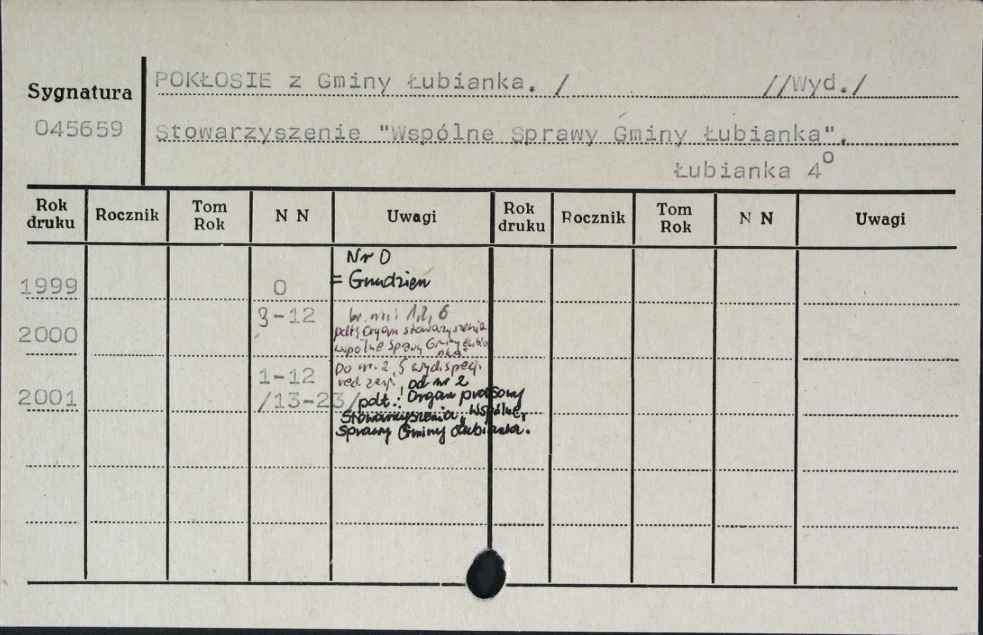 POKŁOSIE z Gminy Łubianka. / //Wyd./
Sygnatura
045659
Stowarzyszenie "Wspólne Sprawy Gminy Łubianka".
Łubianka 4°
Rok druku Rocznik Tom Rok N N Uwagi Rok druku Rocznik Tom Rok N N Uwagi
Nr 0
1999 0 = Grudzień
3-12 br. nr: 1,2, 6
2000 pdt: Organ stowarzyszenia
wspólne Sprawy Gminy
Do nr. 2, 5 wyd. specj.
1-12 red. zesp. od nr 2
2001 /13-23/ pdt.: Organ prasowy
Stowarzyszenia "Wspólne
Sprawy Gminy Łubianka.